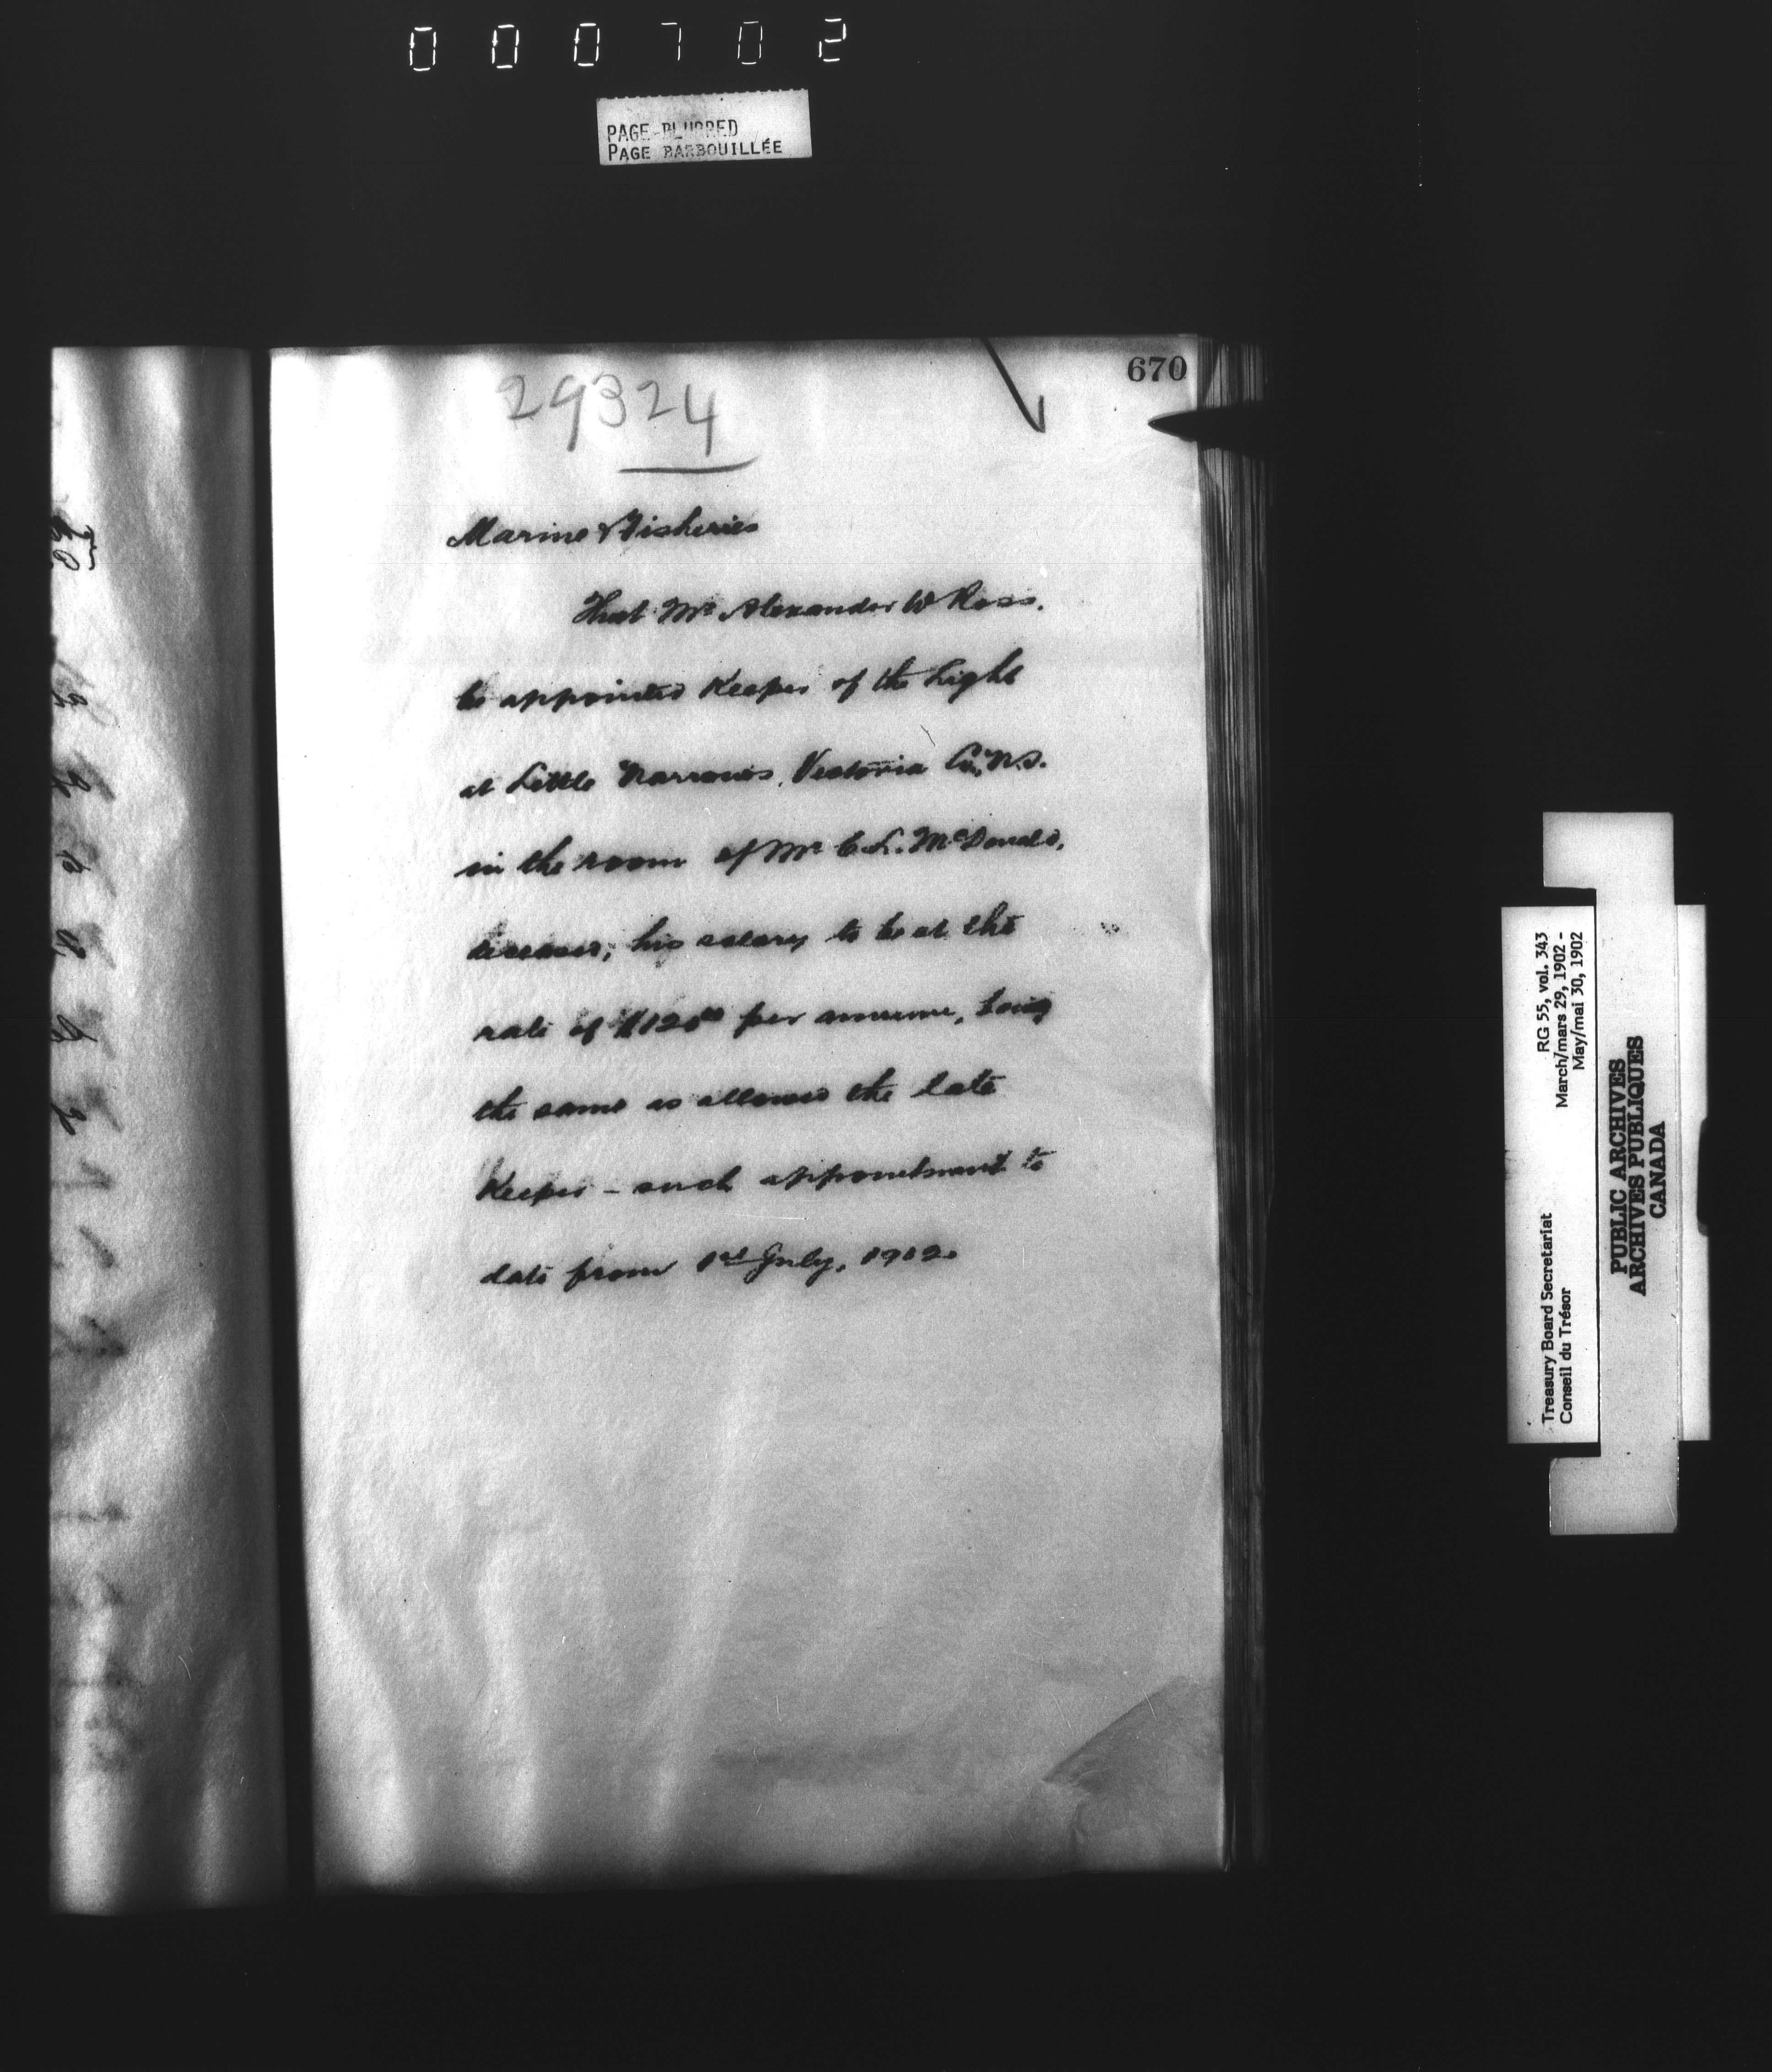 000702
PAGE BLURRED
PAGE BARBOUILLÉE
670
29324
Marine & Fisheries
That Mr Alexander W Ross.
be appointed Keeper of the Light
at Little Narrows, Victoria Co., N.S.
in the room of Mr C. L. McDonald,
deceased; his salary to be at the
rate of $120 00 per annum, being
the same as allowed the late
Keeper - such appointment to
date from 1st July, 1902.
Treasury Board Secretariat RG 55, vol. 343
Conseil du Trésor March/mars 29, 1902 -
May/mai 30, 1902
PUBLIC ARCHIVES
ARCHIVES PUBLIQUES
CANADA